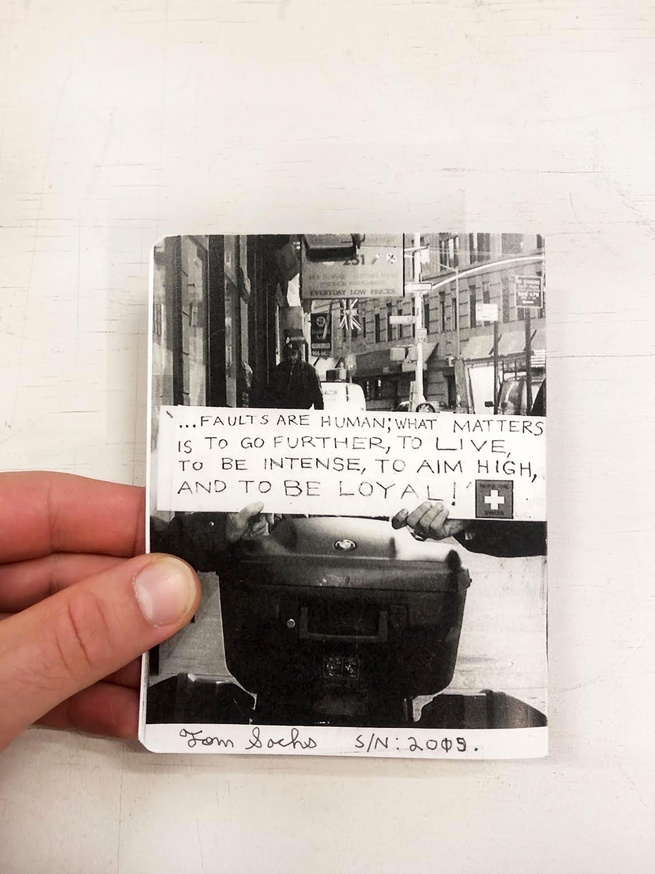 251
EVERYDAY LOW PRICES
"...FAULTS ARE HUMAN; WHAT MATTERS
IS TO GO FURTHER, TO LIVE,
TO BE INTENSE, TO AIM HIGH,
AND TO BE LOYAL!"
Tom Sachs S/N: 2009.